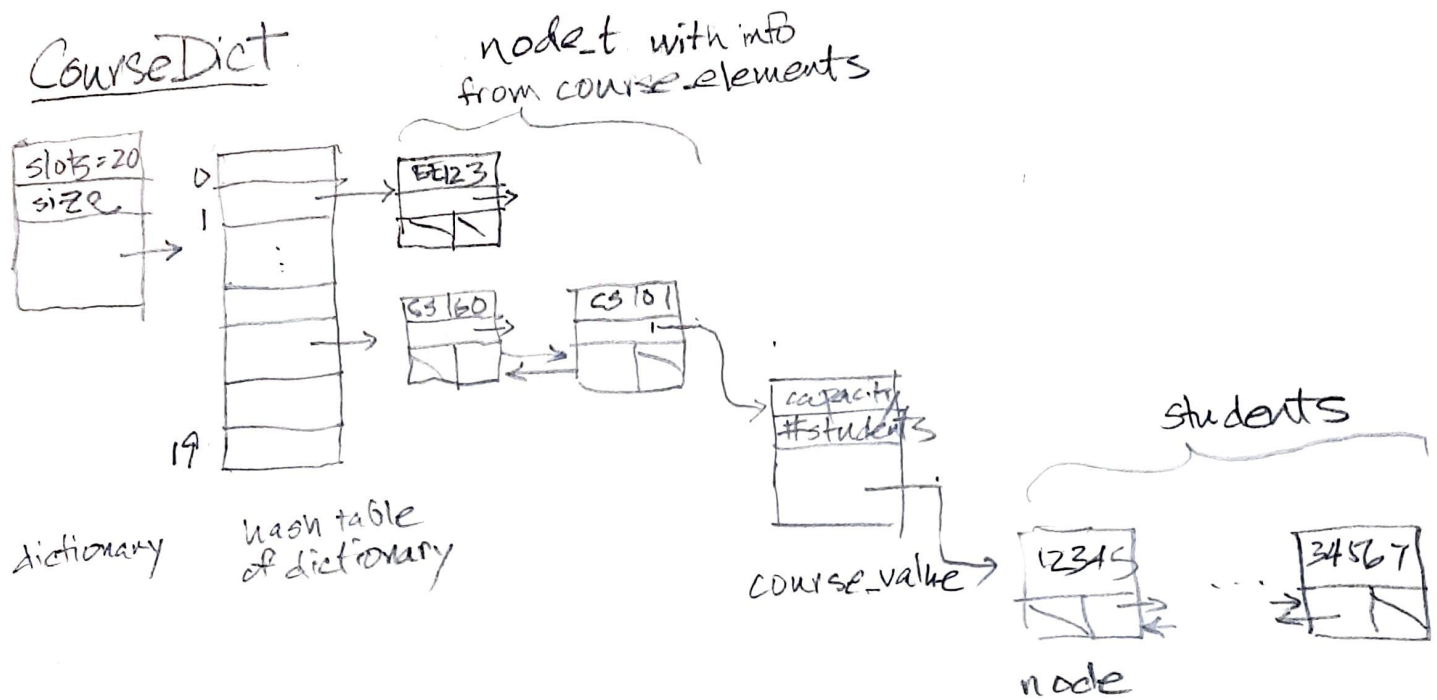 CourseDict
node_t with info
from course_elements
slots=20
size
0
1
⋮
19
EE123
CS160
CS101
capacity
#students
students
12345
...
34567
dictionary
hash table
of dictionary
course_value
node